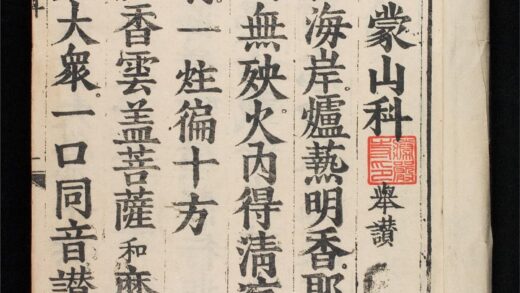 蒙山科 舉讃
海岸爐爇明香。耶
無殃火內得清
一炷徧十方
香雲盖菩薩和
大衆一口同音讃